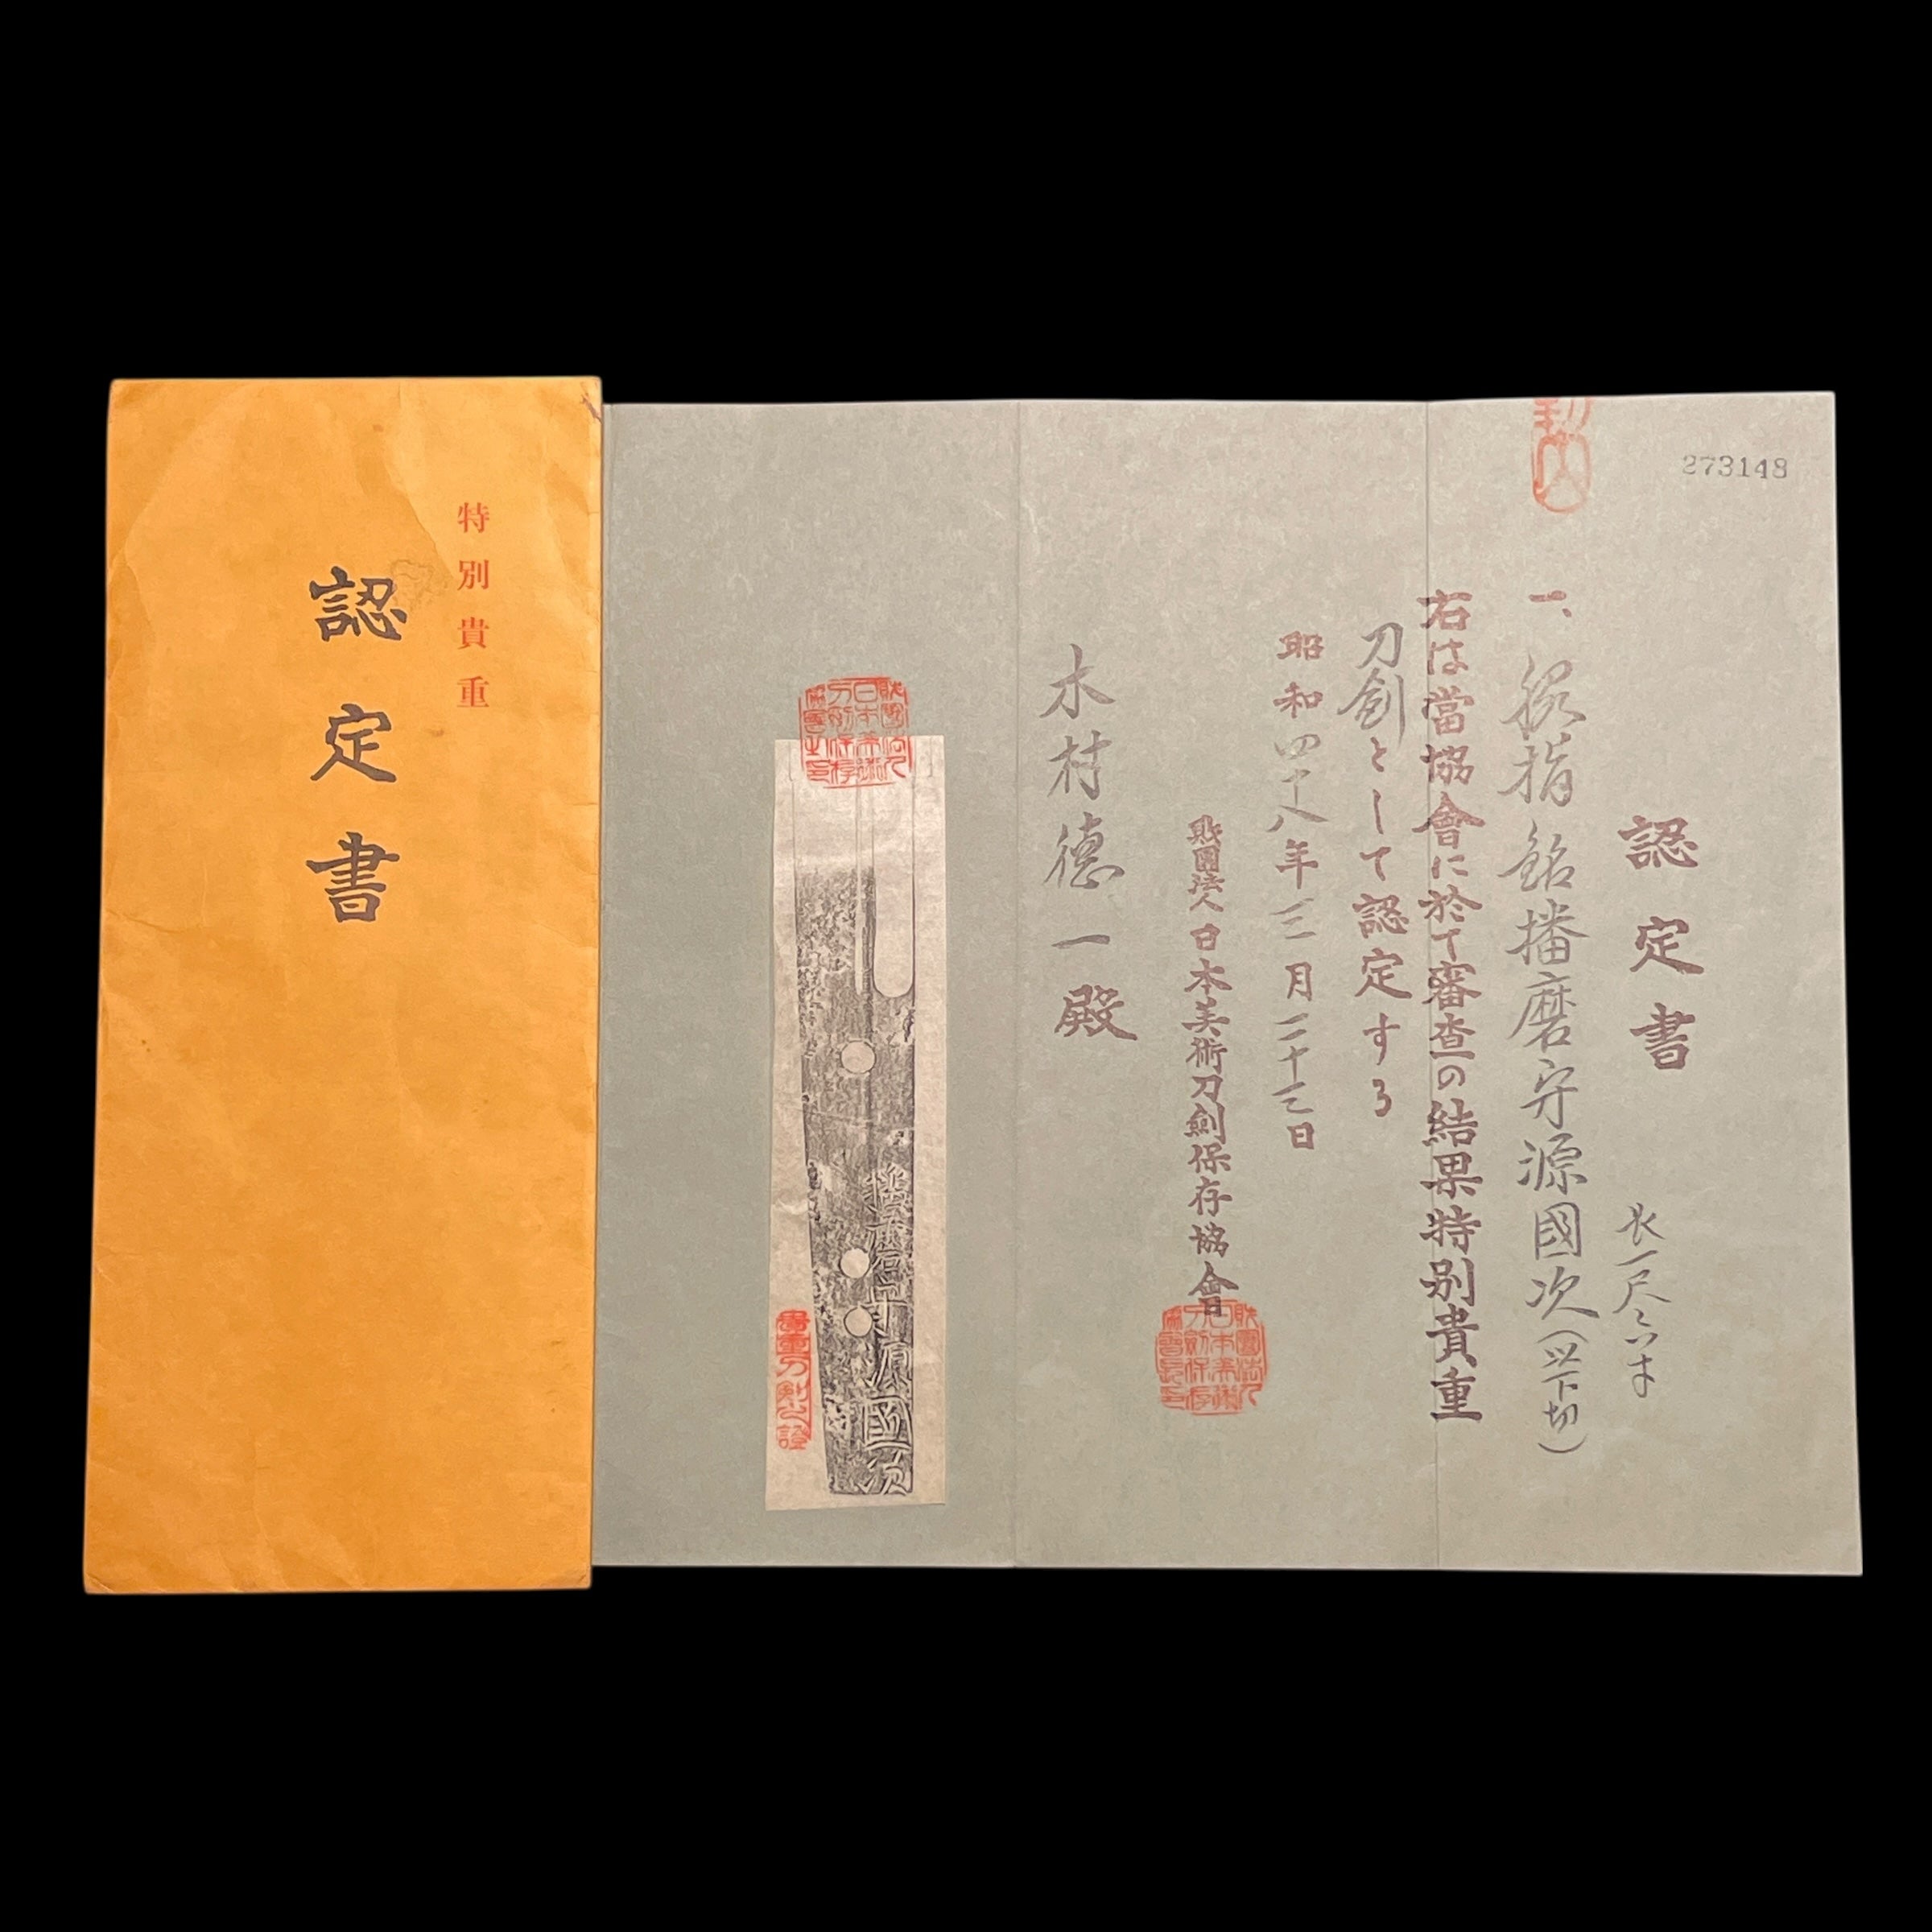 特別貴重
認定書
273148
認定書
長一尺六寸
一、脇指 銘 播磨守源國次(以下切)
右は當協會に於て審査の結果特別貴重
刀剣として認定する
昭和四十八年三月二十三日
財團法人日本美術刀剣保存協會
木村德一殿
播磨守源國次
貴重刀剣之證